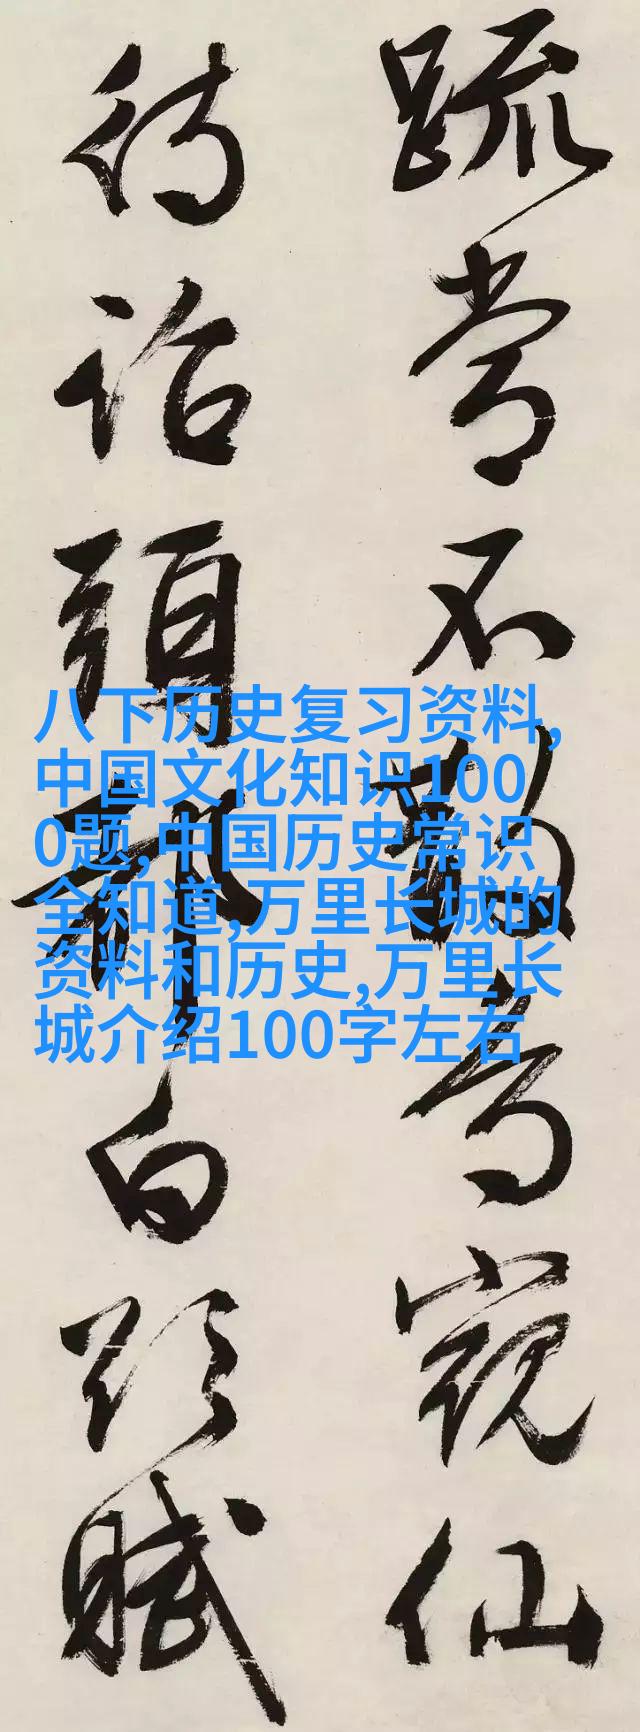 常不
仙
待詔頭
白
賦
八下历史复习资料,
中国文化知识100
0题,中国历史常识
全知道,万里长城的
资料和历史,万里长
城介绍100字左右